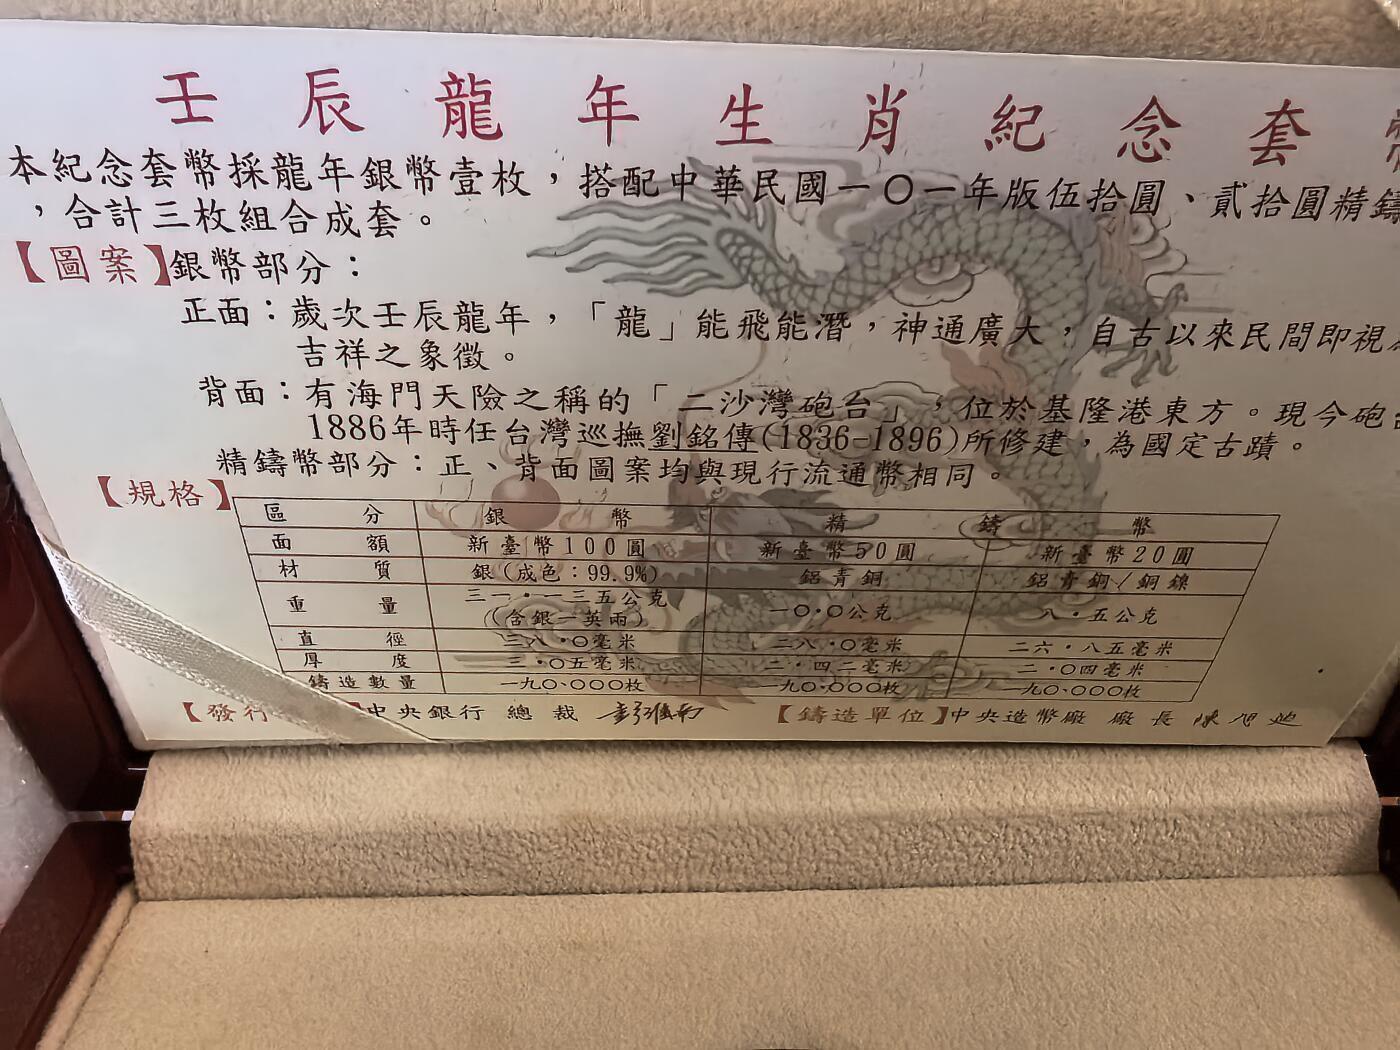 壬辰龍年生肖紀念套
本紀念套幣採龍年銀幣壹枚，搭配中華民國一〇一年版伍拾圓、貳拾圓精鑄
，合計三枚組合成套。
【圖案】銀幣部分：
正面：歲次壬辰龍年，「龍」能飛能潛，神通廣大，自古以來民間即視
吉祥之象徵。
背面：有海門天險之稱的「二沙灣砲台」，位於基隆港東方。現今砲
1886年時任台灣巡撫劉銘傳(1836-1896)所修建，為國定古蹟。
精鑄幣部分：正、背面圖案均與現行流通幣相同。
【規格】
區分 銀幣 精鑄幣
面額 新臺幣100圓 新臺幣50圓 新臺幣20圓
材質 銀(成色：99.9%) 鋁青銅 鋁青銅/銅鎳
重量 三一·一三五公克(含銀一英兩) 一〇·〇公克 八·五公克
直徑 三八·〇毫米 二八·〇毫米 二六·八五毫米
厚度 三·〇五毫米 二·四二毫米 二·〇四毫米
鑄造數量 一九〇、〇〇〇枚 一九〇、〇〇〇枚 一九〇、〇〇〇枚
【發行】中央銀行 總裁 彭淮南 【鑄造單位】中央造幣廠 廠長